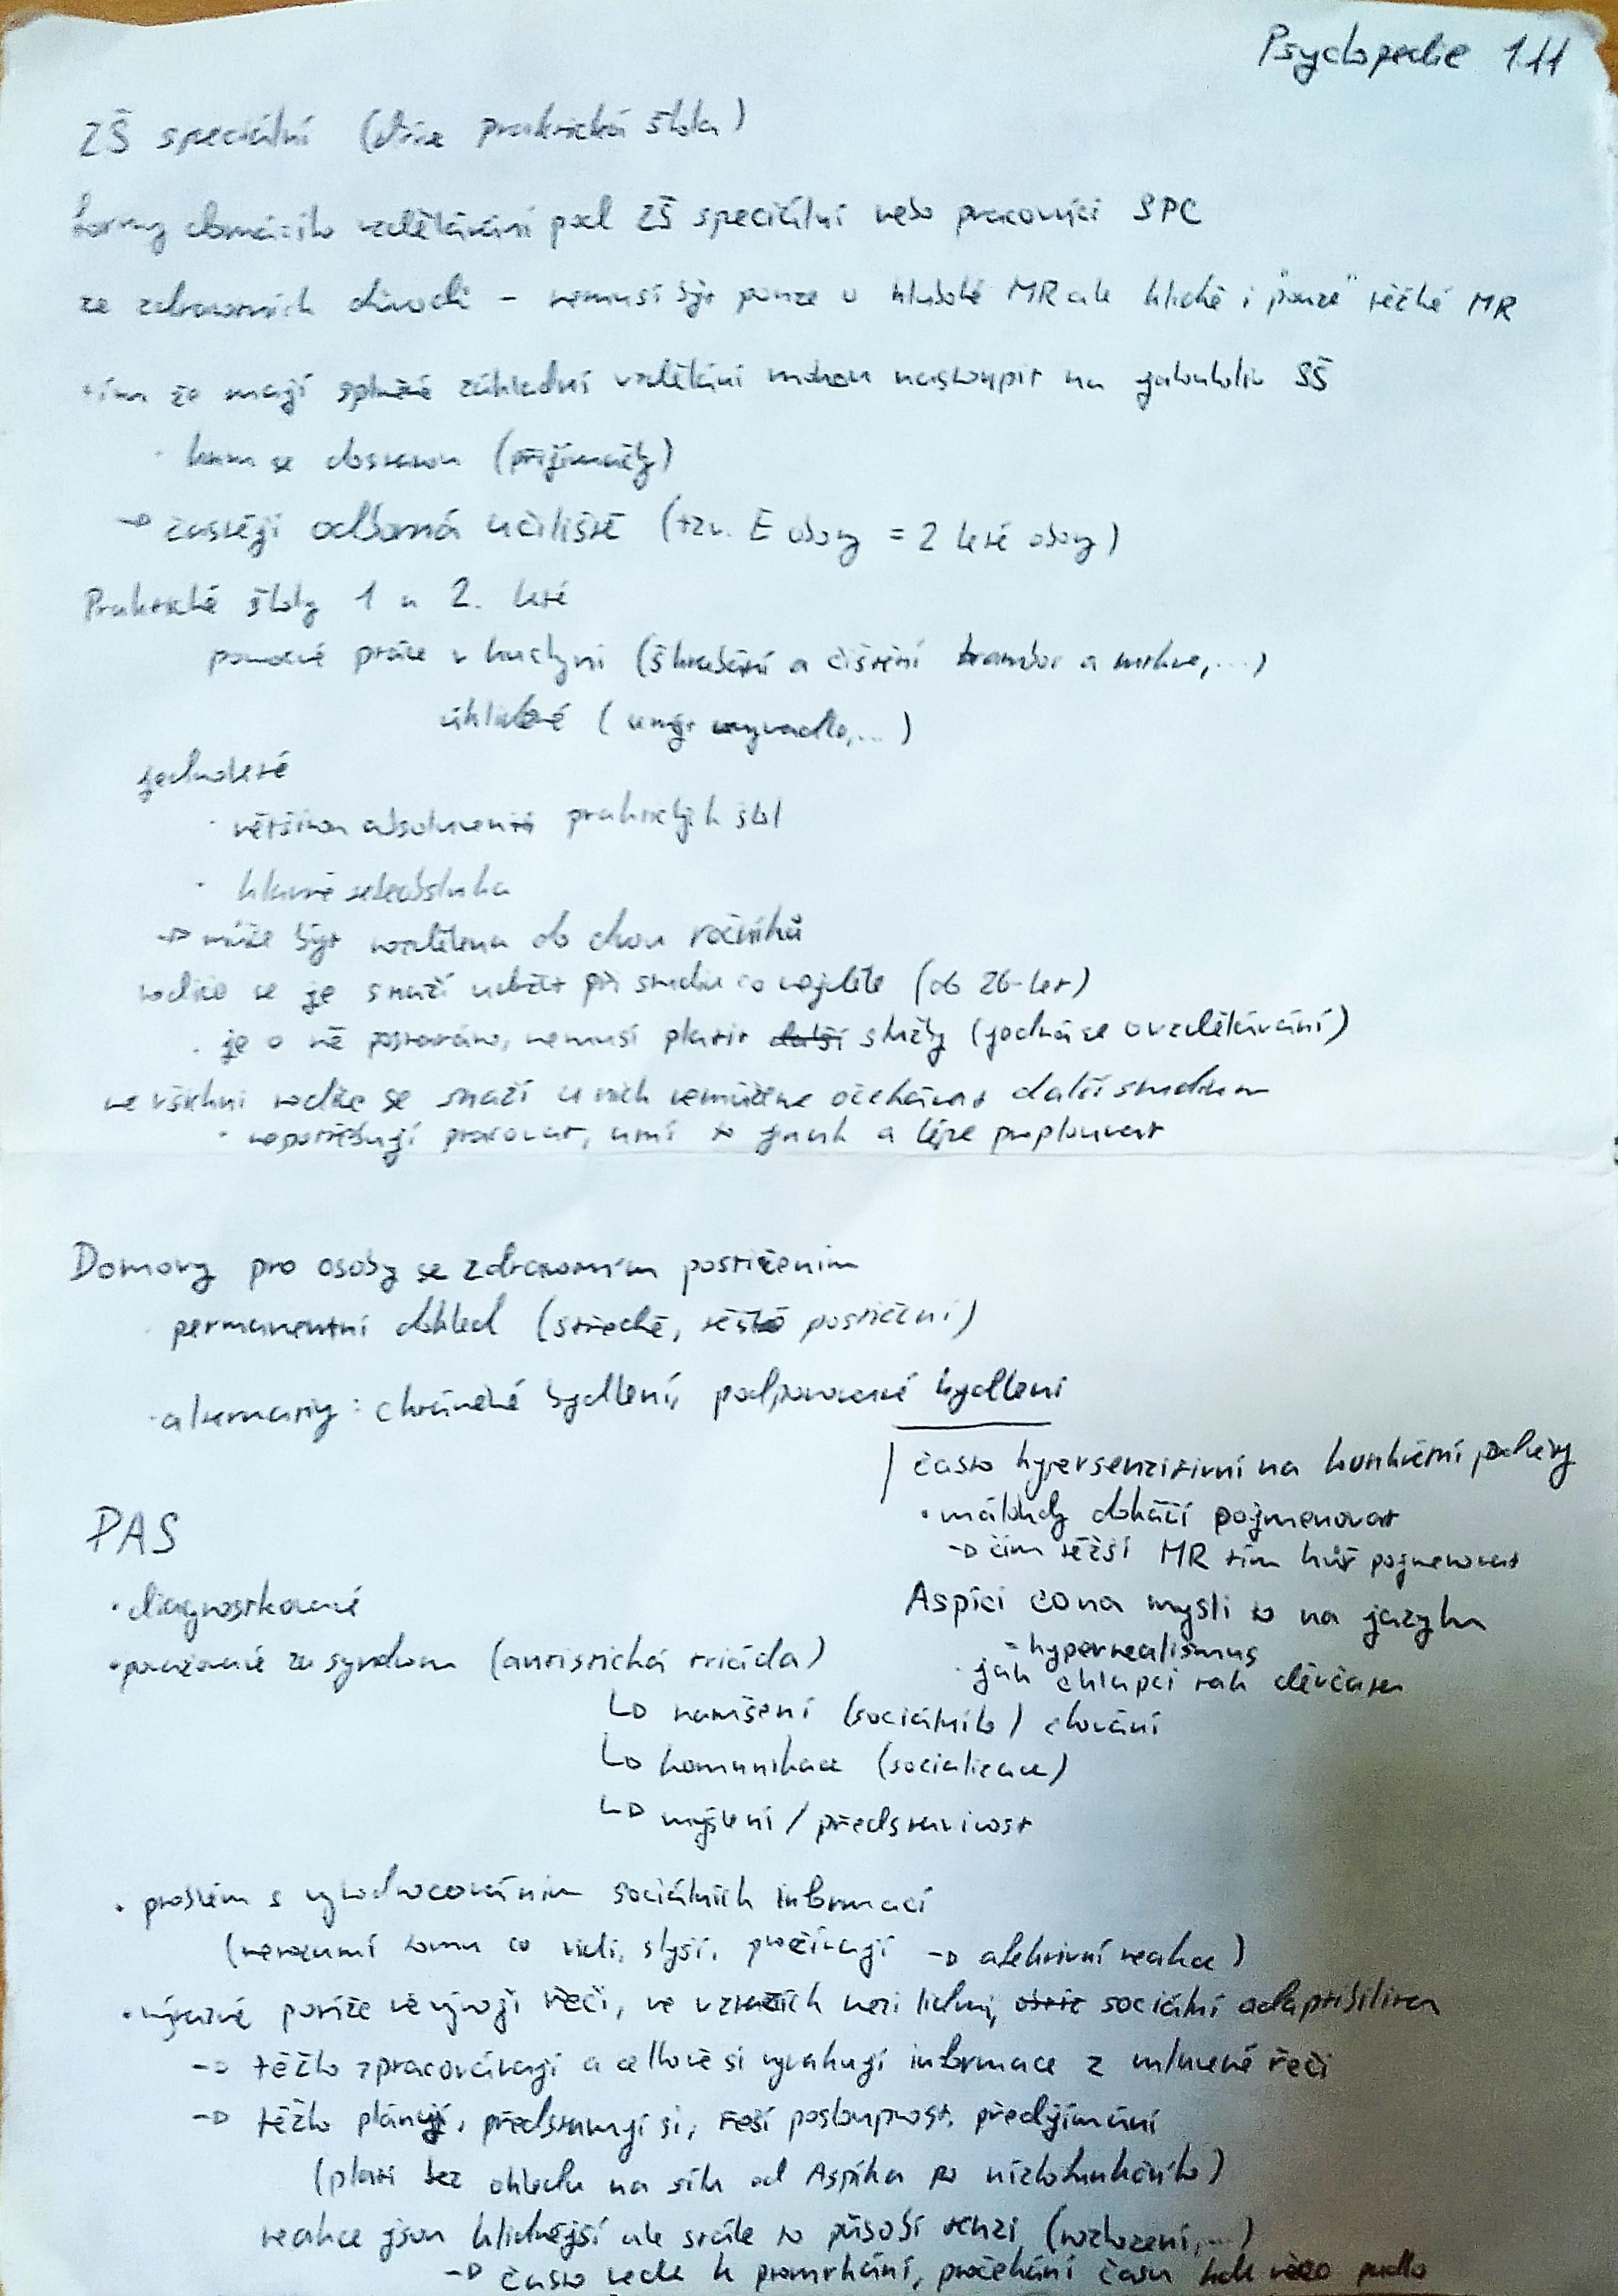 Psychopedie 1.11
ZŠ speciální (dříve praktická škola)
formy domácího vzdělávání pod ZŠ speciální nebo pracovníci SPC
ze zdravotních důvodů - nemusí být pouze u hluboké MR ale klidně i "pouze" těžké MR
tím že mají základní vzdělání mohou nastoupit na jakoukoliv SŠ
· kam se dostanou (přijímačky)
→ častěji odborná učiliště (tzv. E obory = 2 leté obory)
Praktické školy 1 a 2. leté
pomocné práce v kuchyni (škrabání a čištění brambor a mrkve,...)
úklidové (umýt umyvadlo,...)
jednoleté
· většina absolventů praktických škol
· hlavně sebeobsluha
→ může být rozdělena do dvou ročníků
rodiče se je snaží udržet při studiu co nejdéle (do 26-let)
· je o ně postaráno, nemusí platit další služby (jedná se o vzdělávání)
ne všichni rodiče se snaží u nich nemůžeme očekávat další studium
· nepotřebují pracovat, umí to jinak a lépe proplouvat
Domovy pro osoby se zdravotním postižením
· permanentní dohled (středně, těžké postižení)
· alternativy: chráněné bydlení, podporované bydlení
často hypersenzitivní na konkrétní podněty
· málokdy dokáží pojmenovat
→ čím těžší MR tím hůř pojmenovat
Aspíci co na mysli to na jazyku
- hyperrealismus
· jak chlapci tak děvčata
PAS
· diagnostikované
· považované za syndrom (autistická triáda)
↳ narušení (sociálního) chování
↳ komunikace (socializace)
↳ myšlení / představivost
· problém s vyhodnocováním sociálních informací
(nerozumí tomu co vidí, slyší, prožívají → afektivní reakce)
· výrazné potíže ve vývoji řeči, ve vztazích mezi lidmi, sociální adaptibilita
→ těžko zpracovávají a celkově si vybavují informace z mluvené řeči
→ těžko plánují, představují si, řeší posloupnost, předjímání
(platí bez ohledu na sílu od Aspíka po nízkofunkčního)
reakce jsou klidnější ale stále to působí tenzi (rozhození,...)
→ často vede k promrhání, pročekání času kde něco